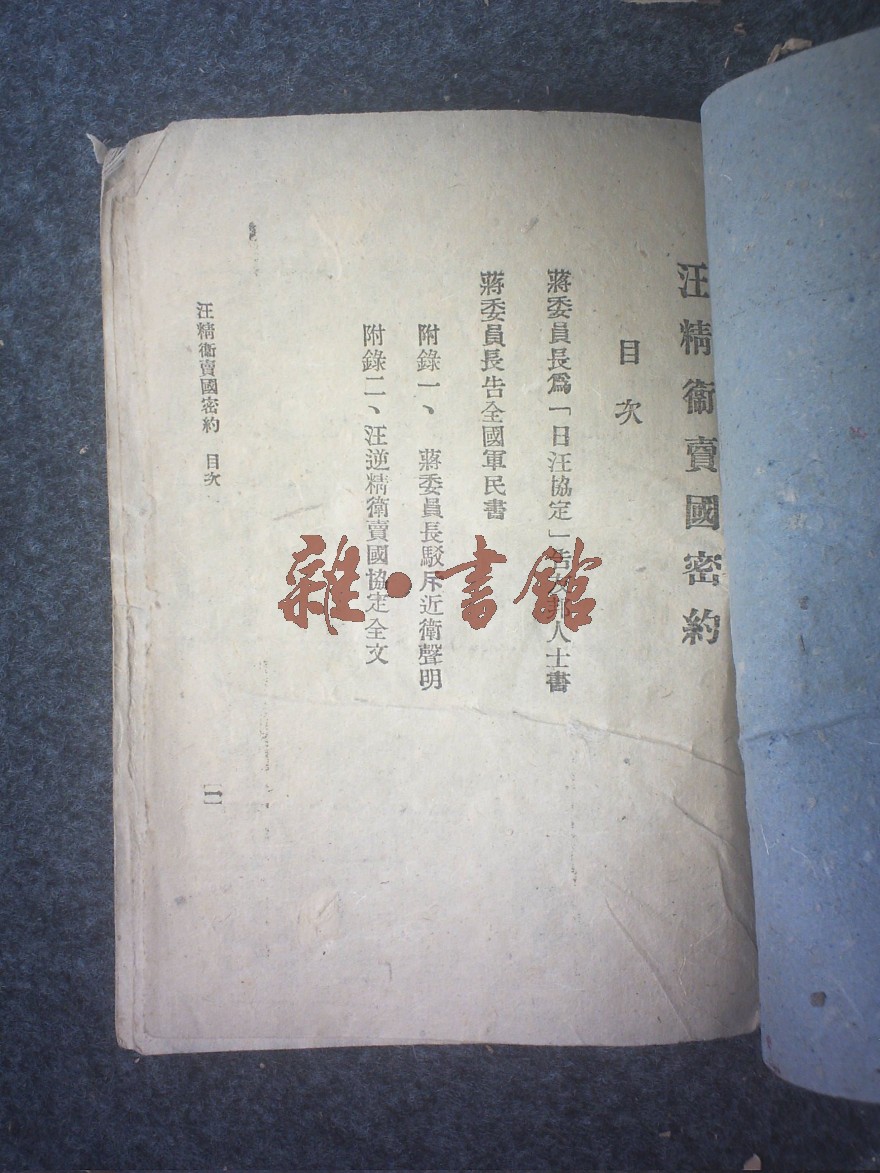 汪精衞賣國密約
目次
蔣委員長爲「日汪協定」告友邦人士書
蔣委員長告全國軍民書
附錄一、 蔣委員長駁斥近衛聲明
附錄二、汪逆精衛賣國協定全文
汪精衞賣國密約 目次
一
雜·書館